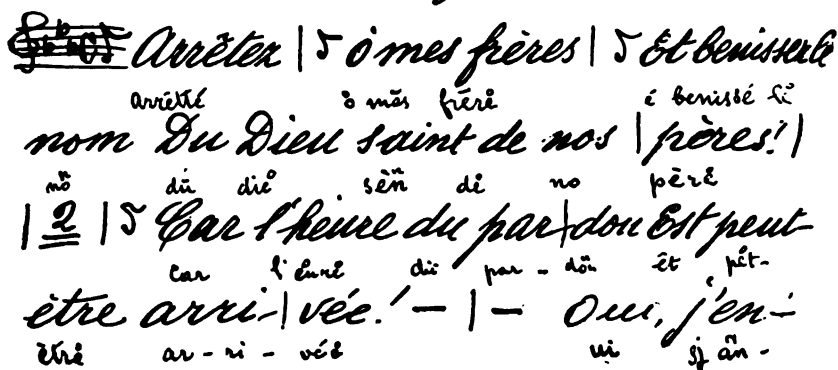 Arrêtez | 5 ô mes frères | 5 Et benissez le
arrêtté ô mēs frērė é benissé lė
nom Du Dieu saint de nos | pères! |
dū diė sēn dė no pèrė
| 2 | 5 Car l'heure du par | don Est peut-
car l'eurė dü par - dōn ēt pėt-
être arri- | vée! - | - Oui, j'en-
ētrė ar - ri - véė ui sj ān -